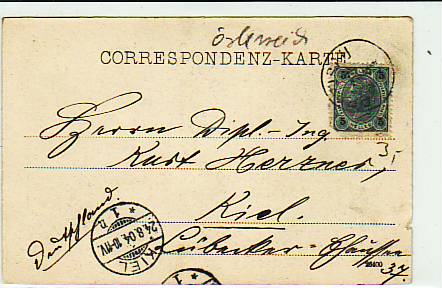 Österreich
CORRESPONDENZ-KARTE
Herrn Dipl.-Ing
Kurt Herzner,
3,-
Kiel.
Deutschland
Lübecker-Chaussee
37.
KIEL
24.8.04.10-11V.
* 1 n.
* 1